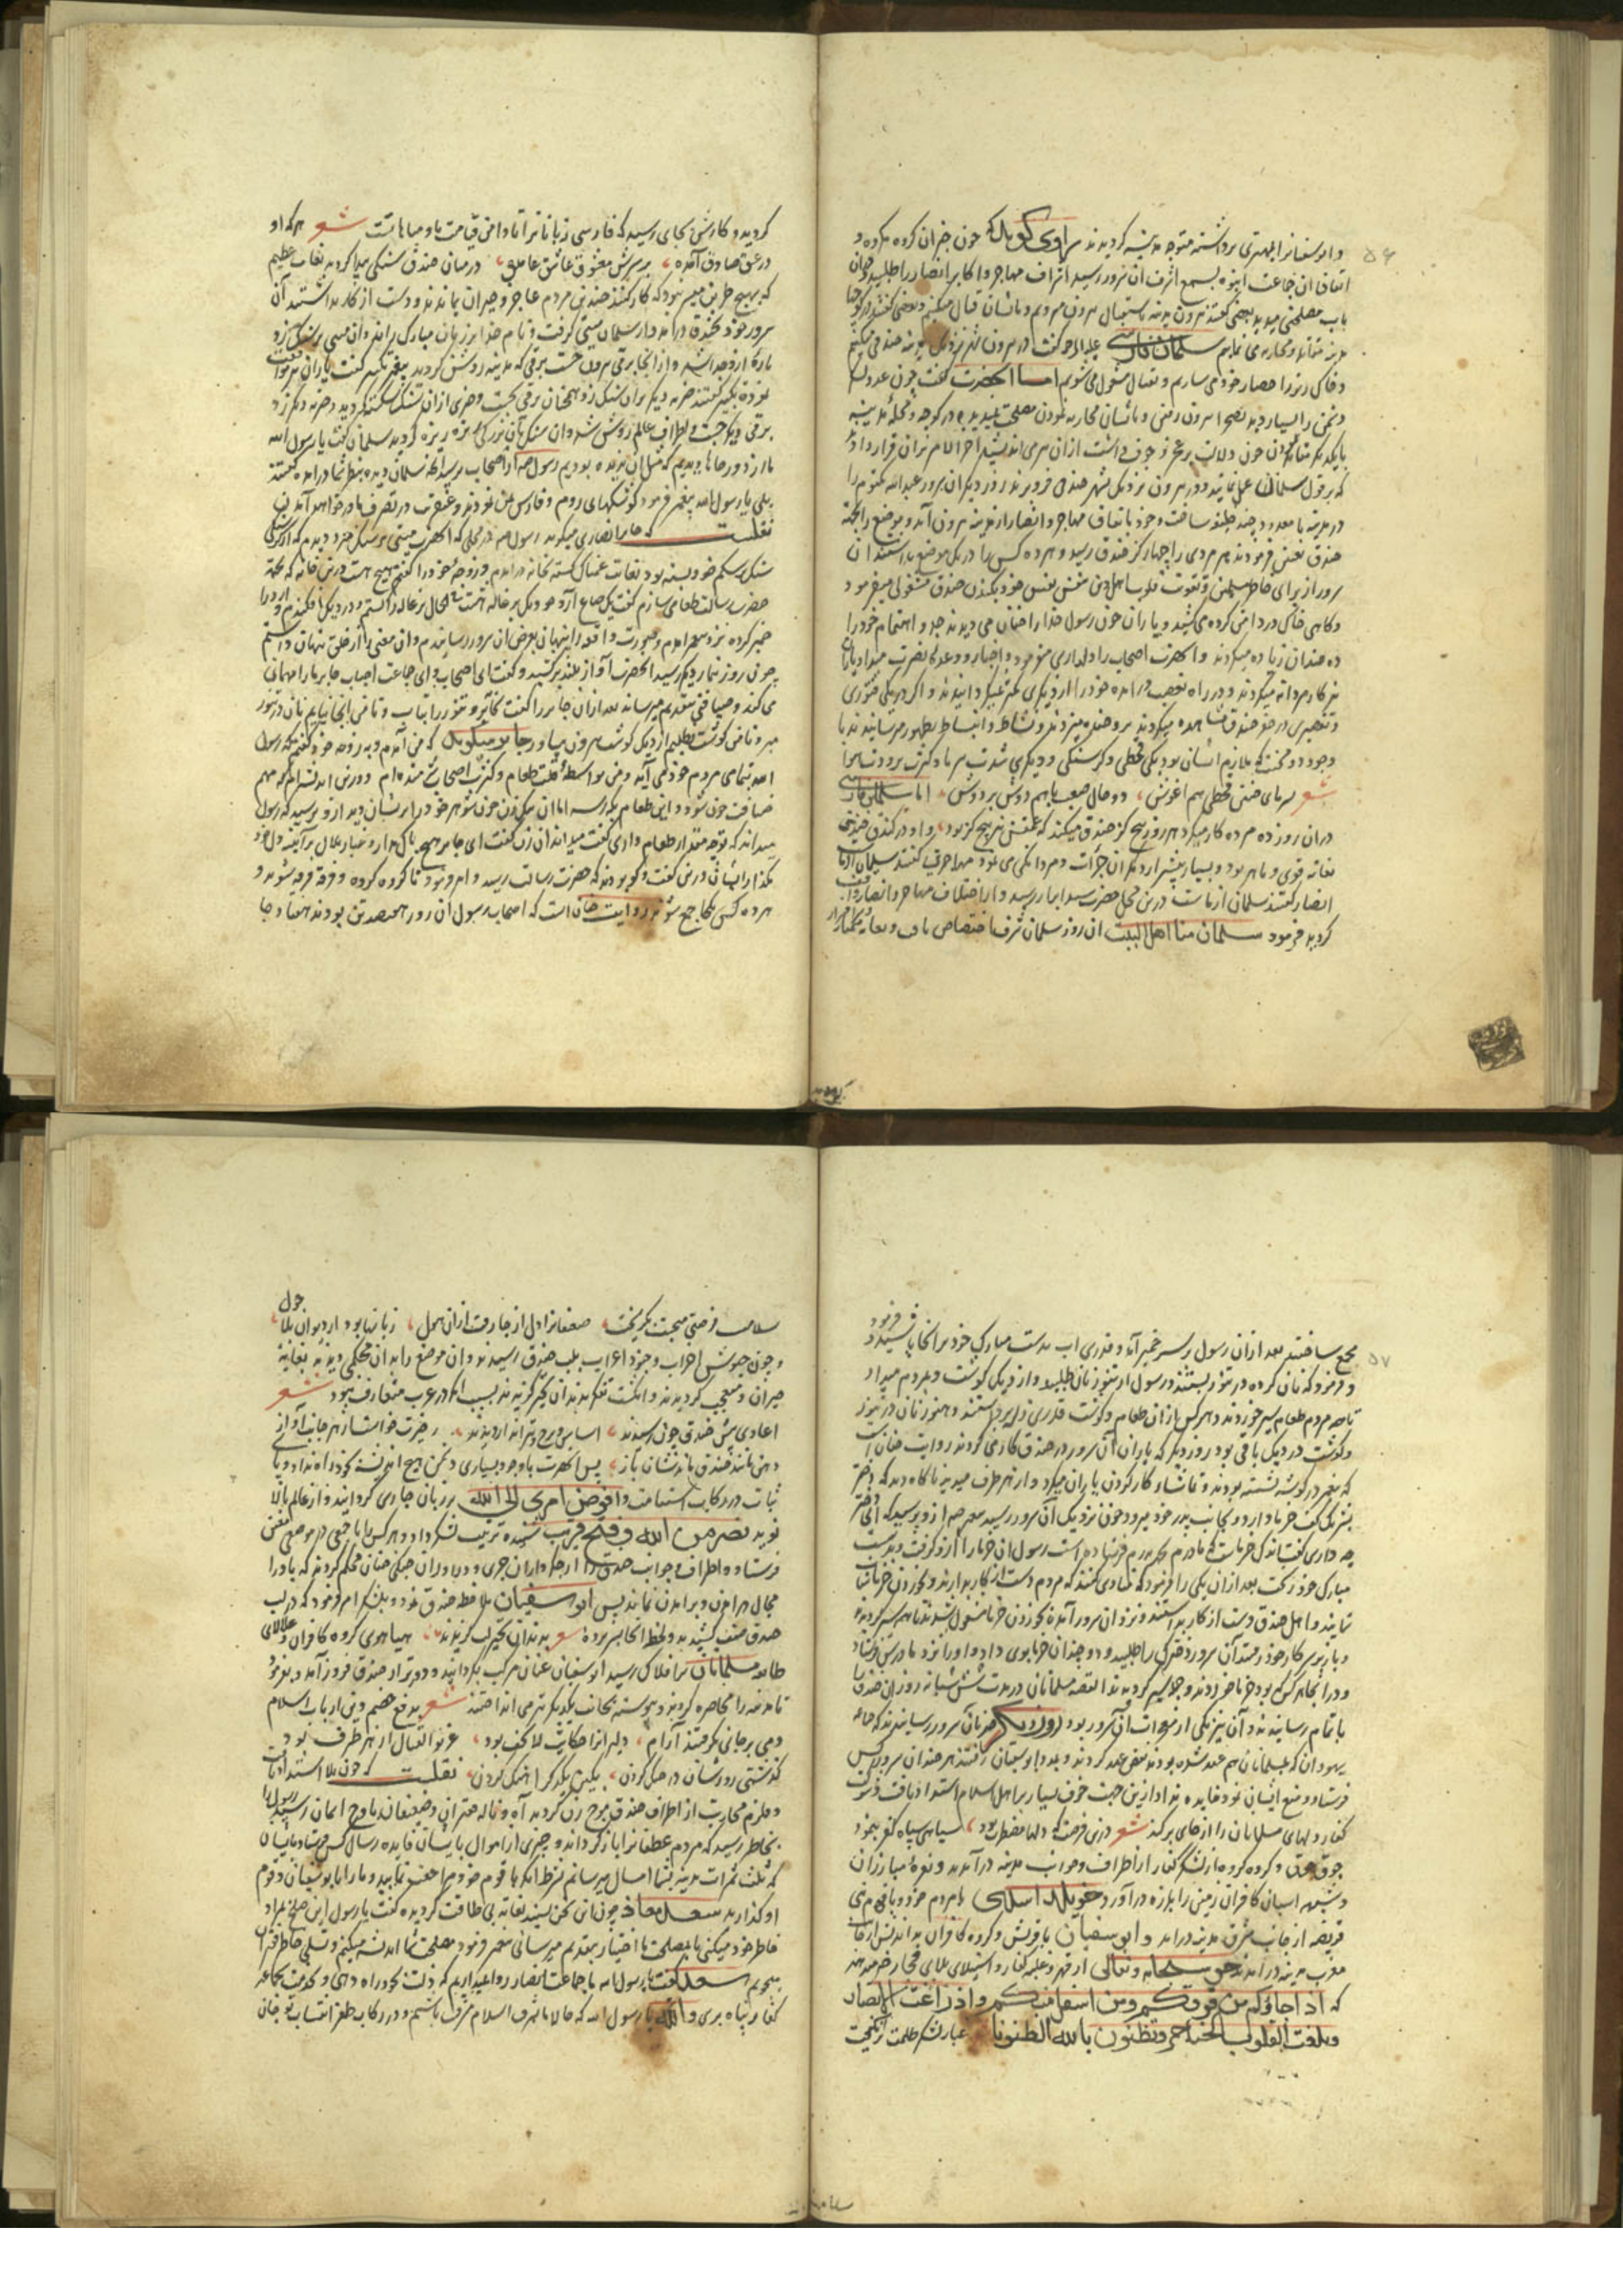 ۵۶
و ابوسفیانرا بمهتری برداشته متوجه مدینه گردیدند راوی گوید که چون خبر آن گروه مکروه و
اتفاق آن جماعت انبوه بسمع اشرف آن سرور رسید اشراف مهاجر و اکابر انصار را طلبید و در آن
باب مصلحتی میدید بعضی گفتند بیرون مدینه باستقبال بیرون میرویم و با ایشان قتال میکنیم و بعضی گفتند
مدینه متقابله و محاربه می نمایم سلمان فارسی علیه الرحمه گفت در بیرون شهر نزدیک مدینه خندقی میکنیم
و خاکریز را حصار خود می سازیم و بقتال مشغول می شویم اما آنحضرت گفت چون عدو
دشمن را بسیار دید بصحرا بیرون رفتن و با ایشان محاربه نمودن مصلحت ندید و در کوچه و محله مدینه
با یکدیگر مقاتله نمودن چون دلالت بر عجز و خوف داشت از آن سر می اندیشید آخر الامر بر آن قرار داد
که بر قول سلمان عمل نمایند و در بیرون نزدیک شهر خندق فرو برند روز دیگر آن سرور عبدالله مکتوم را
در مدینه با معدودی چند خلیفه ساخت و خود باتفاق مهاجر و انصار از مدینه بیرون آمد و موضع را بجهة
خندق تعیین فرمودند هر مردی را چهار گز خندق رسید و هر ده کس را در یک موضع باز داشتند آن
سرور از برای خاطر مسلمین و تقویت قلوب اهل دین بنفس نفیس خود بکندن خندق مشغولی میفرمود
و گاهی خاک در دامن کرده می کشید و یاران چون رسول خدا را چنان می دیدند جد و اهتمام خود را
ده چندان زیاده میکردند و آنحضرت اصحاب را دلداری می نمود و باخبار و وعده نصرت میداد یاران
نیز کار مردانه میکردند و در راه تعصب در آمده خود را از دیگری کمتر نمیگردانیدند و اگر در یکی فتوری
و تقصیری در حفر خندق مشاهده میکردند برو خنده میزدند و نشاط و انبساط بظهور میرسانیدند با
وجود دو محنت که ملازم ایشان بود یکی قحطی و گرسنگی و دیگری شدت سرما و کثرت برودت هوا
شعر سرمای چنین قحطی هم آغوش ، دو حال صعب با هم دوش بر دوش ، اما سلمان فارسی
در آن روز ده مرده کار میکرد هر روز پنج گز خندق میکند که عمقش نیز پنج گز بود و او در کندن خندق
بغایة قوی و ماهر بود و بسیار بیشتر از دیگران جرأت و مردانگی می نمود مهاجریان گفتند سلمان از ماست
انصار گفتند سلمان از ماست درین محل حضرت سید ابرار رسید و از اختلاف مهاجر و انصار واقف
گردید فرمود سلمان منا اهل البیت آن روز سلمان شرف اختصاص یافت
گردید و کارش بجای رسید که فارسی زبانانرا تا دامن قیامت باو مباهاتست شعر هر که او
در عشق صادق آمده ، بر سرش معشوق عاشق آمده ، در میان خندق سنگی پیدا گردید بغایت عظیم
که بهیچ طریق میسر نبود که کار کنند خندق مردم عاجز و حیران بماندند و دست از کار باز داشتند آن
سرور خود بخندق در آمد و از سلمان میتین گرفت و نام خدا بر زبان مبارک راند و آن میتین بر سنگ زد
پاره ازو جدا شد و از آنجا برقی بیرون جست برقی که مدینه روشن گردید پیغمبر تکبیر گفت یاران نیز موافقت
نموده تکبیر گفتند ضربه دیگر بر آن سنگ زد همچنان برقی بجست و جزی از آن سنگ شکسته گردید و ضربه دیگر زد
برقی دیگر جست و اطراف عالم روشن شد و آن سنگ بآن بزرگی ریزه ریزه گردید سلمان گفت یا رسول الله
ما از دور جاها دیدیم که مثل آن ندیده بودیم رسول ص از اصحاب پرسید آنچه سلمان دیده بنظر شما در آمده گفتند
بلی یا رسول الله پیغمبر فرمود کوشکهای روم و فارس بمن نمودند و عنقریب در تصرف ما در خواهد آمد
نقلست که جابر انصاری میگوید رسول ص در محلی که آنحضرت میتین بر سنگ میزد دیدم که از گرسنگی
سنگ بر شکم خود بسته بود بغایت غمناک گشته بخانه در آمدم و زوجه خود را گفتم هیچ هست درین خانه که بجهة
حضرت رسالت طعامی سازم گفت یک صاع آرد جو و یک بزغاله هست فی الحال بزغاله را کشتم و در دیگ افکندم و آرد را
خمیر کرده نزد پیغمبر آمدم و صورت واقعه را پنهان بعرض آن سرور رسانیدم و آن معنی را از خلق پنهان داشتم
چون روز نماز دیگر رسید آنحضرت آواز بلند برکشید و گفت ای اصحاب و ای جماعت احباب جابر ما را مهمانی
می کند و ضیافتی بتقدیم میرساند بعد از آن جابر را گفت بخانه رو و تنور را بتاب و تا من آنجا نیایم نان در تنور
مبر و تا من گوشت نطلبم از دیگ گوشت بیرون میاور جابر میگوید که من آمدم و بزوجه خود گفتم که رسول
الله بتمامی مردم خود می آید و من بواسطه قلت طعام و کثرت اصحاب شرمنده ام و درین اندیشه ام که مهم
ضیافت چون شود و این طعام بکه رسد اما آن نیک زن چون شوهر خود را پریشان دید ازو پرسید که رسول
میداند که تو چه مقدار طعام داری گفت میداند آن زن گفت ای جابر هیچ باک مدار و غبار ملال بر آینه دل خود
مگذار ایشان درین گفت و گو بودند که حضرت رسالت رسید و امر نمود تا گروه گروه و فرقه فرقه شوند و
هر ده کس یکجا جمع شوند روایت چنان است که اصحاب رسول آن روز هفتصد تن بودند
۵۷
جمع ساختند بعد از آن رسول بر سر خمیر آمد و قدری آب بدست مبارک خود بر آنجا پاشید و فرمود
و فرمود که نان کرده در تنور بستند و رسول از تنور نان طلبید و از دیگ گوشت و بمردم میداد
تا همه مردم طعام سیر خوردند و هر کس از آن طعام و گوشت قدری برداشتند و هنوز نان در تنور
و گوشت در دیگ باقی بود روز دیگر که یاران آن سرور در خندق کار می کردند روایت چنان است
که پیغمبر در گوشه نشسته بودند و تماشاء کار کردن یاران میکرد و از هر طرف میدید ناگاه دید که دختر
بشیر یک کف خرما دارد و بجانب پدر خود میرود چون نزدیک آن سرور رسید پیغمبر ص ازو پرسید که ای دختر
چه داری گفت اندک خرماست که مادرم بجهة پدرم فرستاده است رسول آن خرما را ازو گرفت و بدست
مبارک خود ریخت بعد از آن یکی را فرمود که منادی کند که مردم دست از کار بدارند و بخوردن خرما شتاب
نمایند و اهل خندق دست از کار بداشتند و نزد آن سرور آمده بخوردن خرما مشغول شدند تا همه سیر گردیدند
و باز بر سر کار خود رفتند آن سرور دخترک را طلبید و دو چندان خرما بوی داد و او را نزد مادرش فرستاد
باتمام رسانیدند و آن نیز یکی از معجزات آن سرور بود روز دیگر خبر بآن سرور رسانیدند که جماعه
یهودان که با مسلمانان هم عهد شده بودند نقض عهد کردند و بمدد ابوسفیان رفتند هر چند آن سرور کس
فرستاد و منع ایشان نمود فایده نداد ازین جهت خوف بسیار بر اهل اسلام استیلا یافت و شوکت
کفار دلهای مسلمانان را از جای برکند شعر درین فرصت که دلها مضطرب بود ، سیاهی سپاه کفر بنمود
جوق جوق و گروه گروه از لشکر کفار از اطراف و جوانب مدینه در آمدند و نعره مبارزان
و شیهه اسبان کافران زمین را بلرزه در آورد خویلد اسلمی با مردم خود و با بنی
قریضه از جانب شرق مدینه در آمد و ابوسفیان با قریش و گروه کافران بد اندیش از جانب
مغرب مدینه در آمدند حق سبحانه و تعالی از قهر و غلبه کفار و استیلای بلای فجار خبر میدهد
که اذ جاؤکم من فوقکم و من اسفل منکم و اذ زاغت الابصار
و بلغت القلوب الحناجر و تظنون بالله الظنونا غبار لشکر ظلمت برانگیخت
سلامت فرصتی میجست بگریخت ، ضعیفانرا دل از جا رفت از آن هول ، زبانها بود اردو ان بلا حول
و چون جیوش احزاب و جنود اعراب بلب خندق رسیدند و آن موضع را بدان محکمی دیدند بغایة
حیران و متعجب گردیدند و انگشت تفکر بدندان تحیر گزیدند بسبب آنکه در عرب متعارف نبود شعر
اعادی پیش خندق چون رسیدند ،
دهن مانند خندق ماندشان باز ، پس آنحضرت با وجود بسیاری دشمن هیچ اندیشه بخود راه نداد و پای
ثبات در رکاب استقامت و افوض امری الی الله بر زبان جاری گردانید و از عالم بالا
نوید نصر من الله و فتح قریب شنیده ترتیب لشکر داد و هر کس را با جمعی در موضعی تعیین
فرستاد و اطراف و جوانب خندق را از جگر داران جری و دلاوران جنگی چنان محکم گردند که باد را
مجال در آمدن و بر آمدن نماند پس ابوسفیان ملاحظه خندق نمود و بلشکر امر فرمود که در لب
خندق صف کشیدند و لحظه آنجا بسر برده شعر بدندان تحیر لب گزیدند ، هیاهوی گروه کافران و علالای
طایفه مسلمانان بر افلاک رسید ابوسفیان عنان مرکب بگردانید و دورتر از خندق فرود آمد و بفرمود
تا مدینه را محاصره کردند و پیوسته بجانب یکدیگر تیر می انداختند شعر بدفع خصم دین ارباب اسلام
دمی بر جانی گرفتند آرام ، دلیرانرا حکایت لا تخف بود ، غریو القتال از هر طرف بود
گذشتی روزشان در جنگ کردن ، بکین یکدیگر آهنگ کردن ، نقلست که چون بلا استداد یافت
و قلزم محاربت از اطراف خندق موج زن گردید آه و ناله فقیران و ضعیفان باوج آسمان رسید رسول را
بخاطر رسید که مردم غطفانرا باز گرداند و چیزی از اموال بایشان فایده رساند کس فرستاد بایشان
که ثلث ثمرات مدینه بشما امسال میرسانم بشرط آنکه با قوم خود مراجعت نمایید و ما را با ابوسفیان و قوم
او گذارید سعد معاذ چون این سخن شنید بغایة بی طاقت گردیده گفت یا رسول این صلح بمراد
خاطر خود میکنی یا بمصلحت ما اختیار بتقدیم میرسانی پیغمبر فرمود بمصلحت شما اندیشه میکنم و تسلی خاطر فقیران
میجویم سعد گفت یا رسول الله ما جماعت انصار روا نمیداریم که ذلت بخود راه دهیم و بحکومت جماعه
کفار پناه بری والله یا رسول الله که حالا ما بشرف اسلام مشرف باشیم و در رکاب ظفر انتساب تو جان